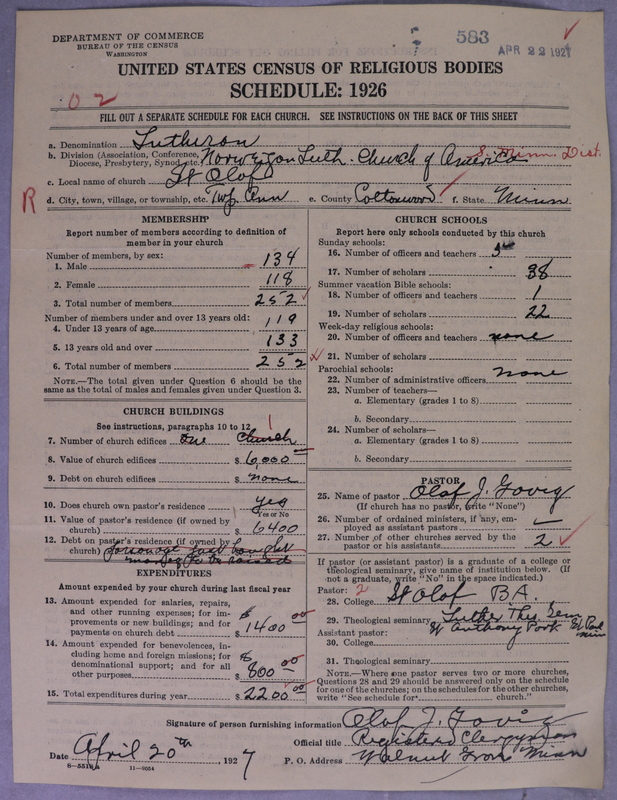 DEPARTMENT OF COMMERCE
BUREAU OF THE CENSUS
WASHINGTON
583
APR 22 1927
UNITED STATES CENSUS OF RELIGIOUS BODIES
SCHEDULE: 1926
02
FILL OUT A SEPARATE SCHEDULE FOR EACH CHURCH. SEE INSTRUCTIONS ON THE BACK OF THIS SHEET
a. Denomination Lutheran
b. Division (Association, Conference, Diocese, Presbytery, Synod, etc.) Norwegian Luth. Church of America S. Minn. Dist.
c. Local name of church St Olof
R
d. City, town, village, or township, etc. Twp. Ann e. County Cottonwood f. State Minn
MEMBERSHIP
Report number of members according to definition of
member in your church
Number of members, by sex:
1. Male 134
2. Female 118
3. Total number of members 252
Number of members under and over 13 years old:
4. Under 13 years of age 119
5. 13 years old and over 133
6. Total number of members 252
NOTE.—The total given under Question 6 should be the
same as the total of males and females given under Question 3.
CHURCH BUILDINGS
See instructions, paragraphs 10 to 12
7. Number of church edifices one church 1
8. Value of church edifices $ 6,000
9. Debt on church edifices $ none
10. Does church own pastor's residence? yes
Yes or No
11. Value of pastor's residence (if owned by
church) $ 6400
12. Debt on pastor's residence (if owned by
church) Parsonage just bought
money to be raised
EXPENDITURES
Amount expended by your church during last fiscal year
13. Amount expended for salaries, repairs,
and other running expenses; for im-
provements or new buildings; and for
payments on church debt $ 1400 00
14. Amount expended for benevolences, in-
cluding home and foreign missions; for
denominational support; and for all
other purposes $ 800 00
15. Total expenditures during year $ 2200 00
CHURCH SCHOOLS
Report here only schools conducted by this church
Sunday schools:
16. Number of officers and teachers
17. Number of scholars 38
Summer vacation Bible schools:
18. Number of officers and teachers 1
19. Number of scholars 22
Week-day religious schools:
20. Number of officers and teachers none
21. Number of scholars
Parochial schools:
22. Number of administrative officers none
23. Number of teachers—
a. Elementary (grades 1 to 8)
b. Secondary
24. Number of scholars—
a. Elementary (grades 1 to 8)
b. Secondary
PASTOR
25. Name of pastor Olof J. Govig
(If church has no pastor, write "None")
26. Number of ordained ministers, if any, em-
ployed as assistant pastors —
27. Number of other churches served by the
pastor or his assistants 2
If pastor (or assistant pastor) is a graduate of a college or
theological seminary, give name of institution below. (If
not a graduate, write "No" in the space indicated.)
Pastor: 2
28. College St Olof BA.
29. Theological seminary Luther The. Sem
St Anthony Park St Paul Minn
Assistant pastor:
30. College
31. Theological seminary
NOTE.—Where one pastor serves two or more churches,
Questions 28 and 29 should be answered only on the schedule
for one of the churches; on the schedules for the other churches,
write "See schedule for church."
Signature of person furnishing information Olof J. Govig
Official title Registered Clergyman
Date April 20th, 1927 P. O. Address Walnut Grove Minn
11—9054